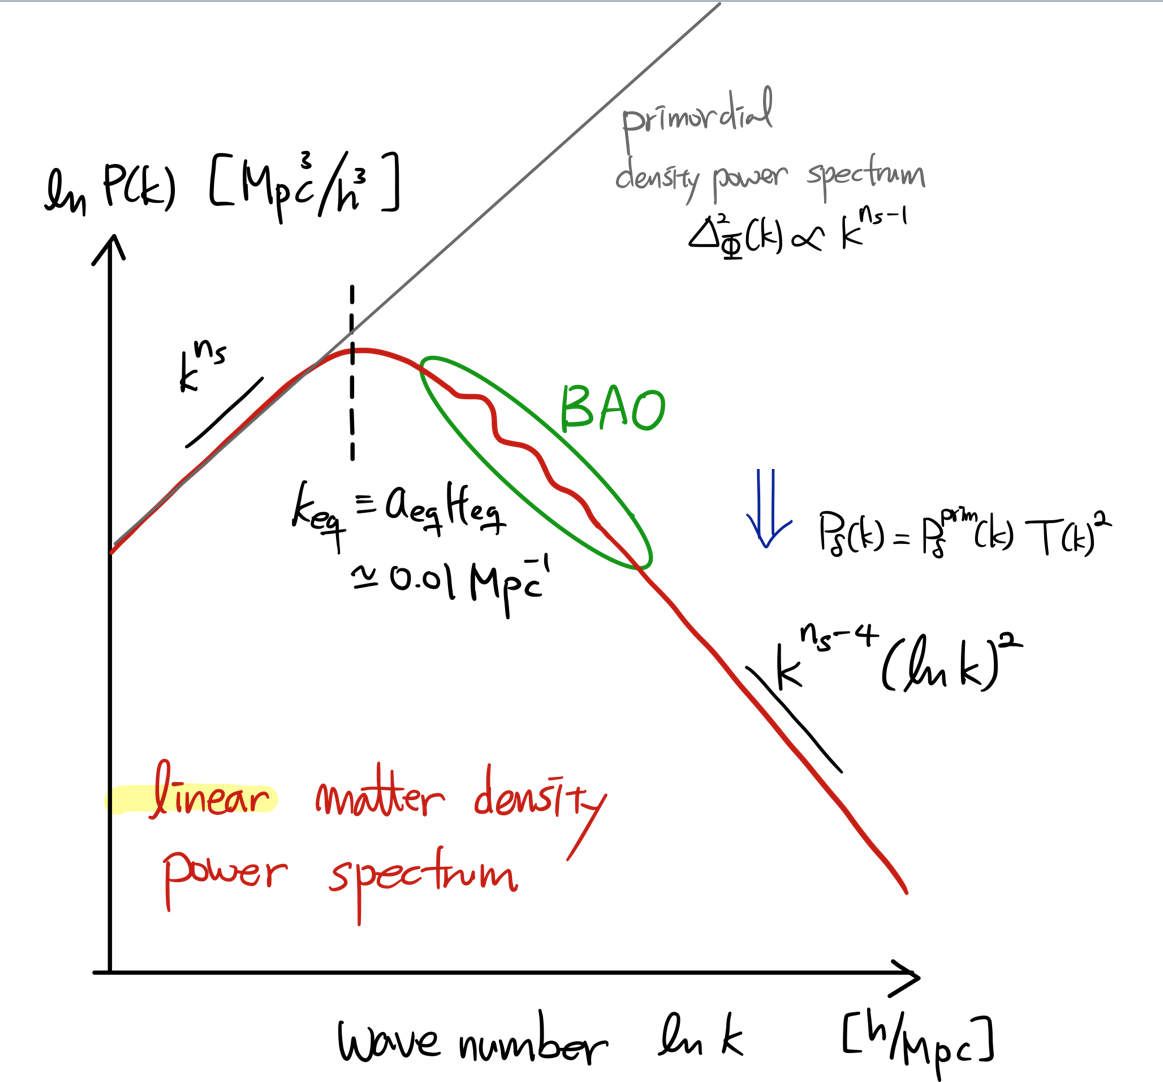 primordial
density power spectrum
Δ²_Φ(k) ∝ k^{n_s-1}
ln P(k) [Mpc³/h³]
k^{n_s}
BAO
k_eq ≡ a_eq H_eq
≃ 0.01 Mpc⁻¹
P_δ(k) = P_δ^{prim}(k) T(k)²
k^{n_s-4} (ln k)²
linear matter density
power spectrum
wave number ln k [h/Mpc]